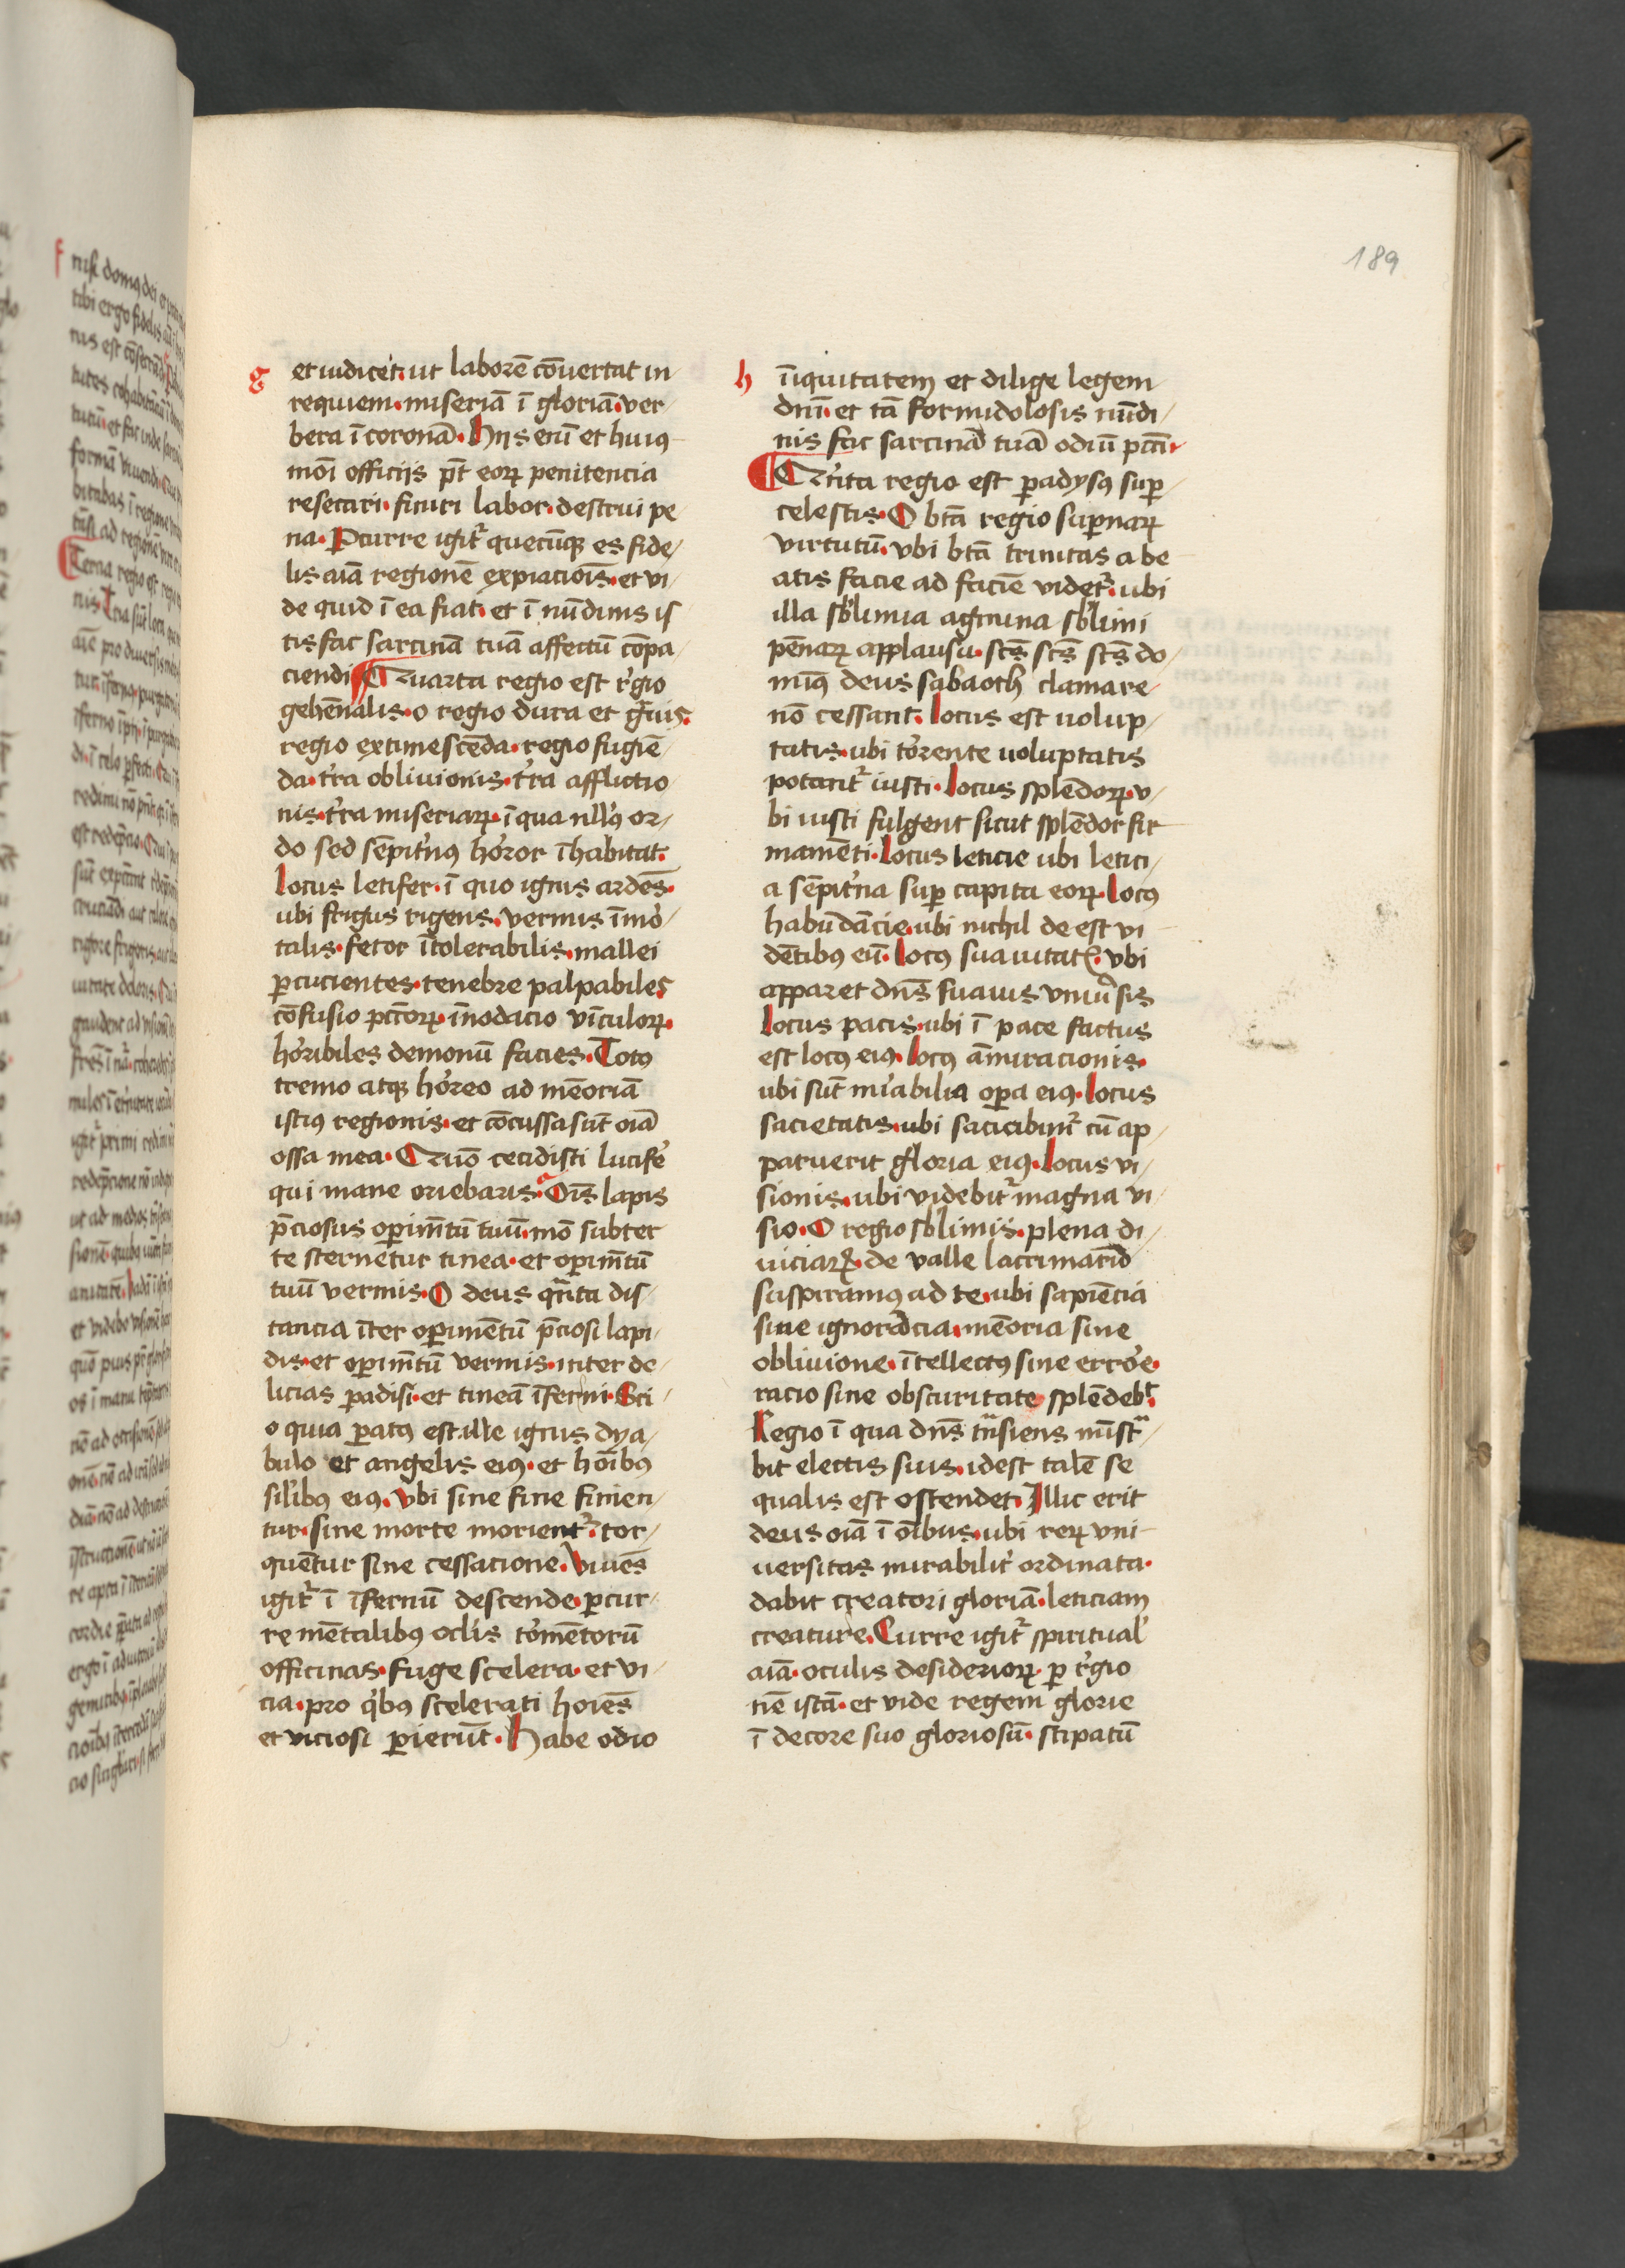 189
g et iudicet. ut laborē cōuertat in-
requiem. miseriā ī gloriā. ver-
bera ī coronā. Hijs enī et huiꝰ-
moī officijs pn̄t eoꝝ penitencia
resecari. finiri labor. destrui pe-
na. Pcurre igit̉ quecūqꝫ es fide/
lis aīa regionē expiacioīs. et vi/
de quid ī ea fiat. et ī nūdinis is
tis fac sarcinā tuā affectū cōpa/
ciendi ¶ Quarta regio est r̉gio
gehēnalis. o regio dura et gͣuis.
regio extimescēda. regio fugiē/
da. tr̉a obliuionis. tr̉a afflictio/
nis. tr̉a miseriaꝝ. ī qua nll̉ꝰ or/
do sed sēpit̉nꝰ hor̉or īhabitat.
locus letifer. ī quo ignis ardēs.
ubi frigus rigens. vermis īmỏ/
talis. fetor ītolerabilis. mallei
ꝑcucientes. tenebre palpabiles
cōfusio pctōꝝ. īnodacio vīculoꝝ.
hor̉ibiles demonū facies. Totꝰ
tremo atqꝫ hor̉eo ad mēoriā
istiꝰ regionis. et cōcussa sūt oīa
ossa mea. Quō cecidisti lucifẻ
qui mane oriebaris. Oīs lapis
p̄ciosus oꝑimt̄ū tuū. mō subter
te sternetur tinea. et oꝑimt̄ū
tuū vermis. O deus qͣnta dis/
tancia īter oꝑimētū p̄ciosi lapi/
dis. et oꝑimt̄ū vermis. inter de/
licias ꝑadisi. et tineā īferni. Sci/
o quia ꝑatꝰ est ille ignis dya/
bulo et angelis eiꝰ. et hoīibꝰ
sil̉ibꝰ eiꝰ. Vbi sine fine finien/
tur. sine morte morient̉. tor/
quētur sine cessacione. Viuēs
igit̉ ī īfernū descende. ꝑcur/
re mētalibꝰ oclīs tor̉mētorū
officinas. fuge scelera. et vi/
cia. pro qͥbꝰ scelerati hoīes
et viciosi ꝑierūt. Habe odio
h īiquitatem et dilige legem
dn̄i. et tā formidolosis nūdi/
nis fac sarcinā tuā odiū pctī.
¶ Qͥnta regio est ꝑadysꝰ suꝑ/
celestis. O btā regio suꝑnaꝝ
virtutū. vbi btā trinitas a be-
atis facie ad faciē videt̉. ubi
illa sb̉limia agmina sb̉limi
pēnaꝝ applausu. sc̄s sc̄s sc̄s do/
minꝰ deus sabaoth clamare/
nō cessant. Locus est uolup/
tatis. ubi tor̉ente uoluptatis
potant̉ iusti. Locus splēdoꝝ. v/
bi iusti fulgent sicut splēdor fir-
mamēti. Locus leticie ubi letici/
a sēpit̉na suꝑ capita eoꝝ. Locꝰ
habūdācie. ubi nichil de est vi-
dētibꝰ eū. Locꝰ suauitatꝭ. vbi
apparet dn̄s suauis vniủsis
Locus pacis. ubi ī pace factus
est locꝰ eiꝰ. Locꝰ āmiracionis.
ubi sūt mīabilia oꝑa eiꝰ. Locus
sacietatis. ubi saciabūnt̉ cū ap/
paruerit gloria eiꝰ. Locus vi/
sionis. ubi videbit̉ magna vi/
sio. O regio sb̉limis. plena di/
uiciaꝝ. de valle lacrimarū
suspiramꝰ ad te. ubi sapiēcia
sine ignorācia. mēoria sine
obliuione. ītellectꝰ sine errỏe.
racio sine obscuritate splēdebͭ.
Regio ī qua dn̄s tͣnsiens mīstͣ/
bit electis suis. idest talē se
qualis est ostendet. Illic erit
deus oīa ī oībus. ubi reꝝ vni-
uersitas mirabilit̉ ordinata.
dabit creatori gloriā. leticiam
creature. Curre igit̉ spiritual̉
aīa. oculis desiderioꝝ. ꝑ r̉gio
nē istā. et vide regem glorie
ī decore suo gloriosū. stipatū